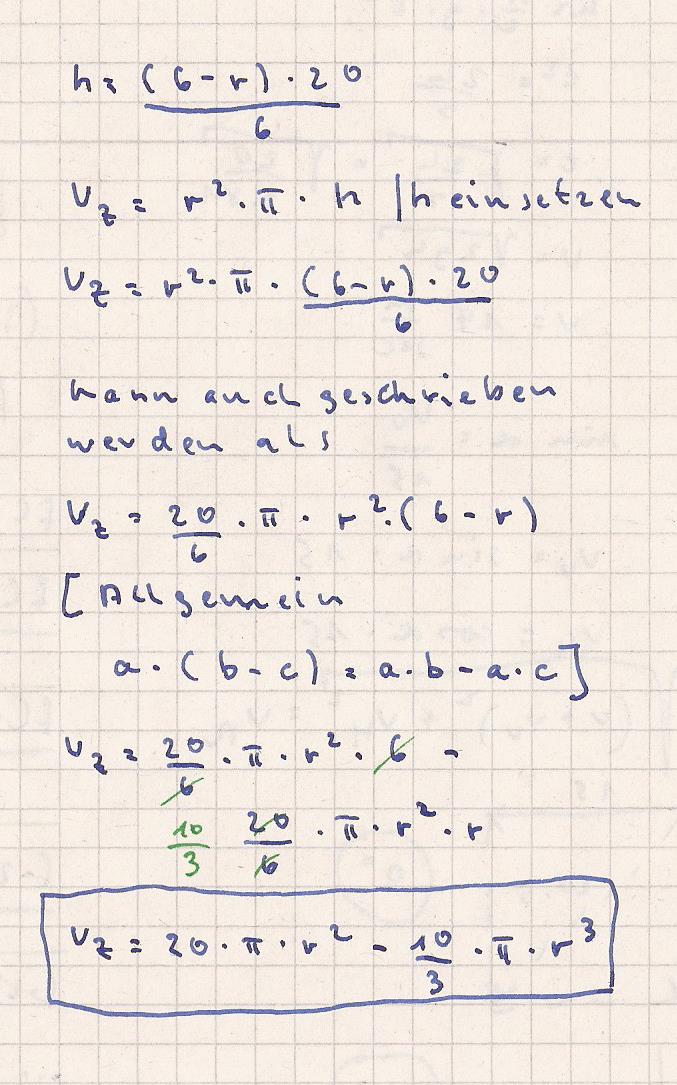 h = (6-r)·20
6
Vz = r²·π·h |h einsetzen
Vz = r²·π·(6-r)·20
6
kann auch geschrieben
werden als
Vz = 20/6·π·r²·(6-r)
[Allgemein
a·(b-c) = a·b-a·c]
Vz = 20/6·π·r²·6 -
10/3 20/6·π·r²·r
Vz = 20·π·r² - 10/3·π·r³